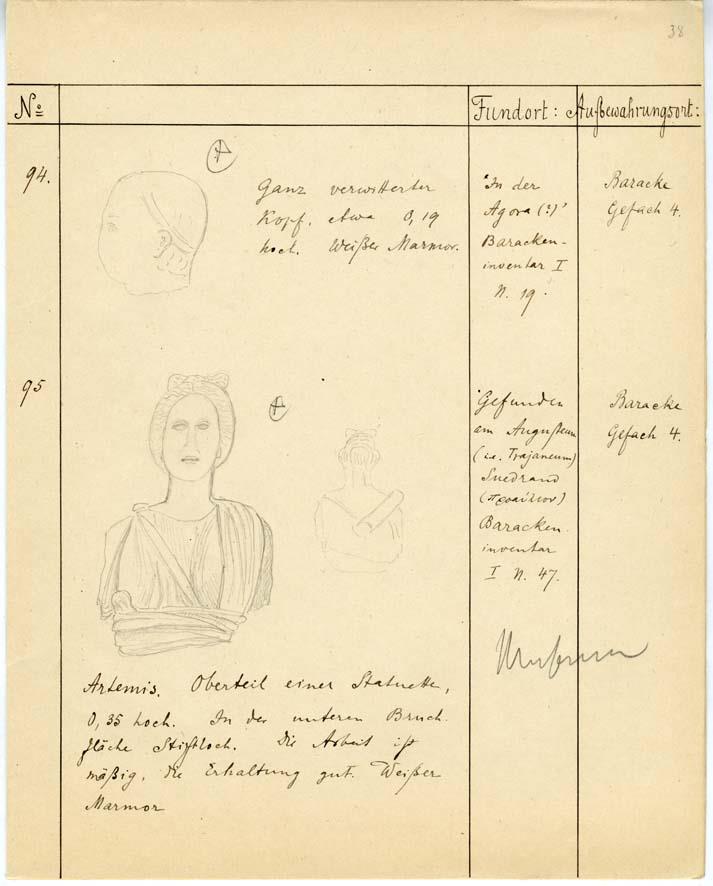 38
No
Fundort:
Aufbewahrungsort:
94.
A
Ganz verwitterter
Kopf, etwa 0,19
hoch. Weißer Marmor.
"In der
Agora (?)"
Baracken-
inventar I
N. 19.
Baracke
Gefach 4.
95
A
"Gefunden
am Augusteum
(i.e. Trajaneum)
Suedrand
Baracken
inventar
I N. 47.
Baracke
Gefach 4.
Museum
Artemis. Oberteil einer Statuette,
0,35 hoch. In der unteren Bruch
fläche Stiftloch. Die Arbeit ist
mäßig, die Erhaltung gut. Weißer
Marmor